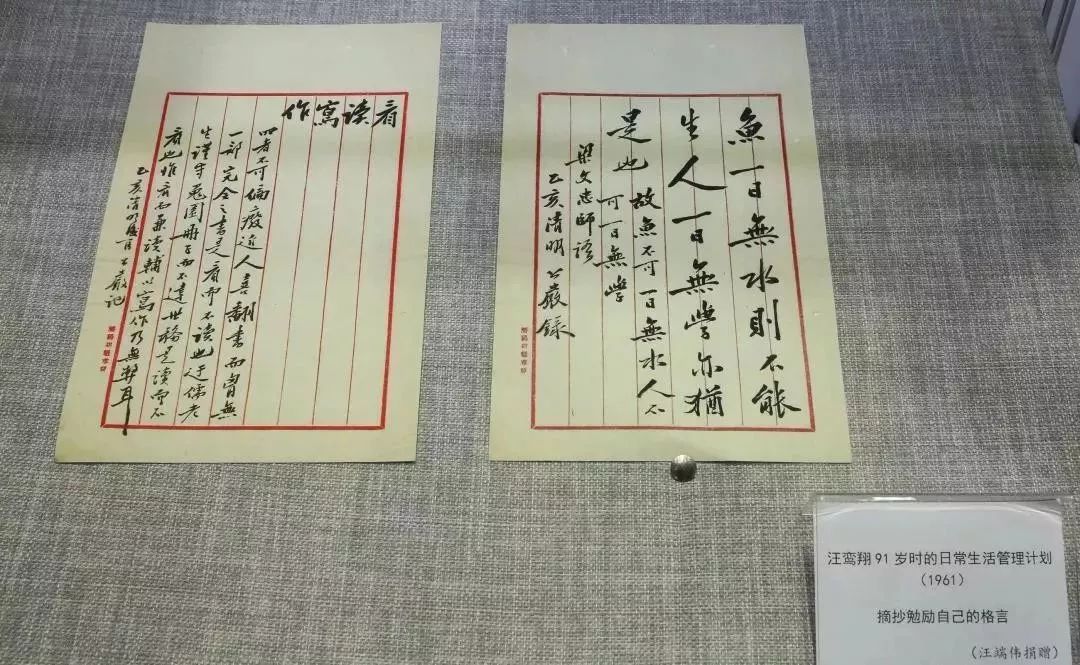 看读寫作
四者不可偏廢近人喜翻書而胸無
一部完全之書是看而不读也迂儒老
生谨守兔園册子而不達世務是读而不
看也惟看而兼读輔以寫作乃無弊耳
乙亥清明 公嚴记
魚一日無水則不能
生人一日無學亦猶
是也
故魚不可一日無水人不
可一日無學
梁文忠師語
乙亥清明 公嚴録
汪鸾翔 91 岁时的日常生活管理计划
（1961）
摘抄勉励自己的格言
（汪端伟捐赠）